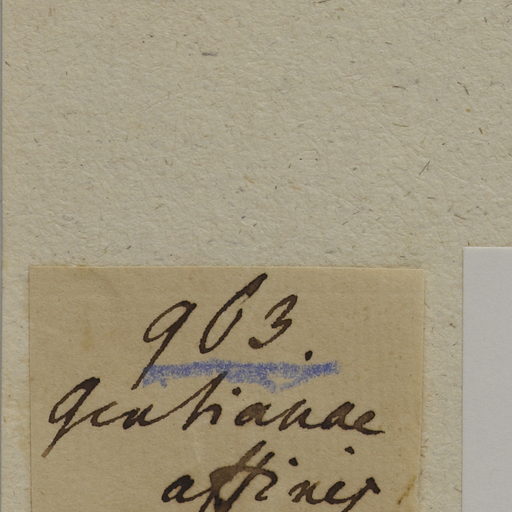 963.
Gentianae
affinis